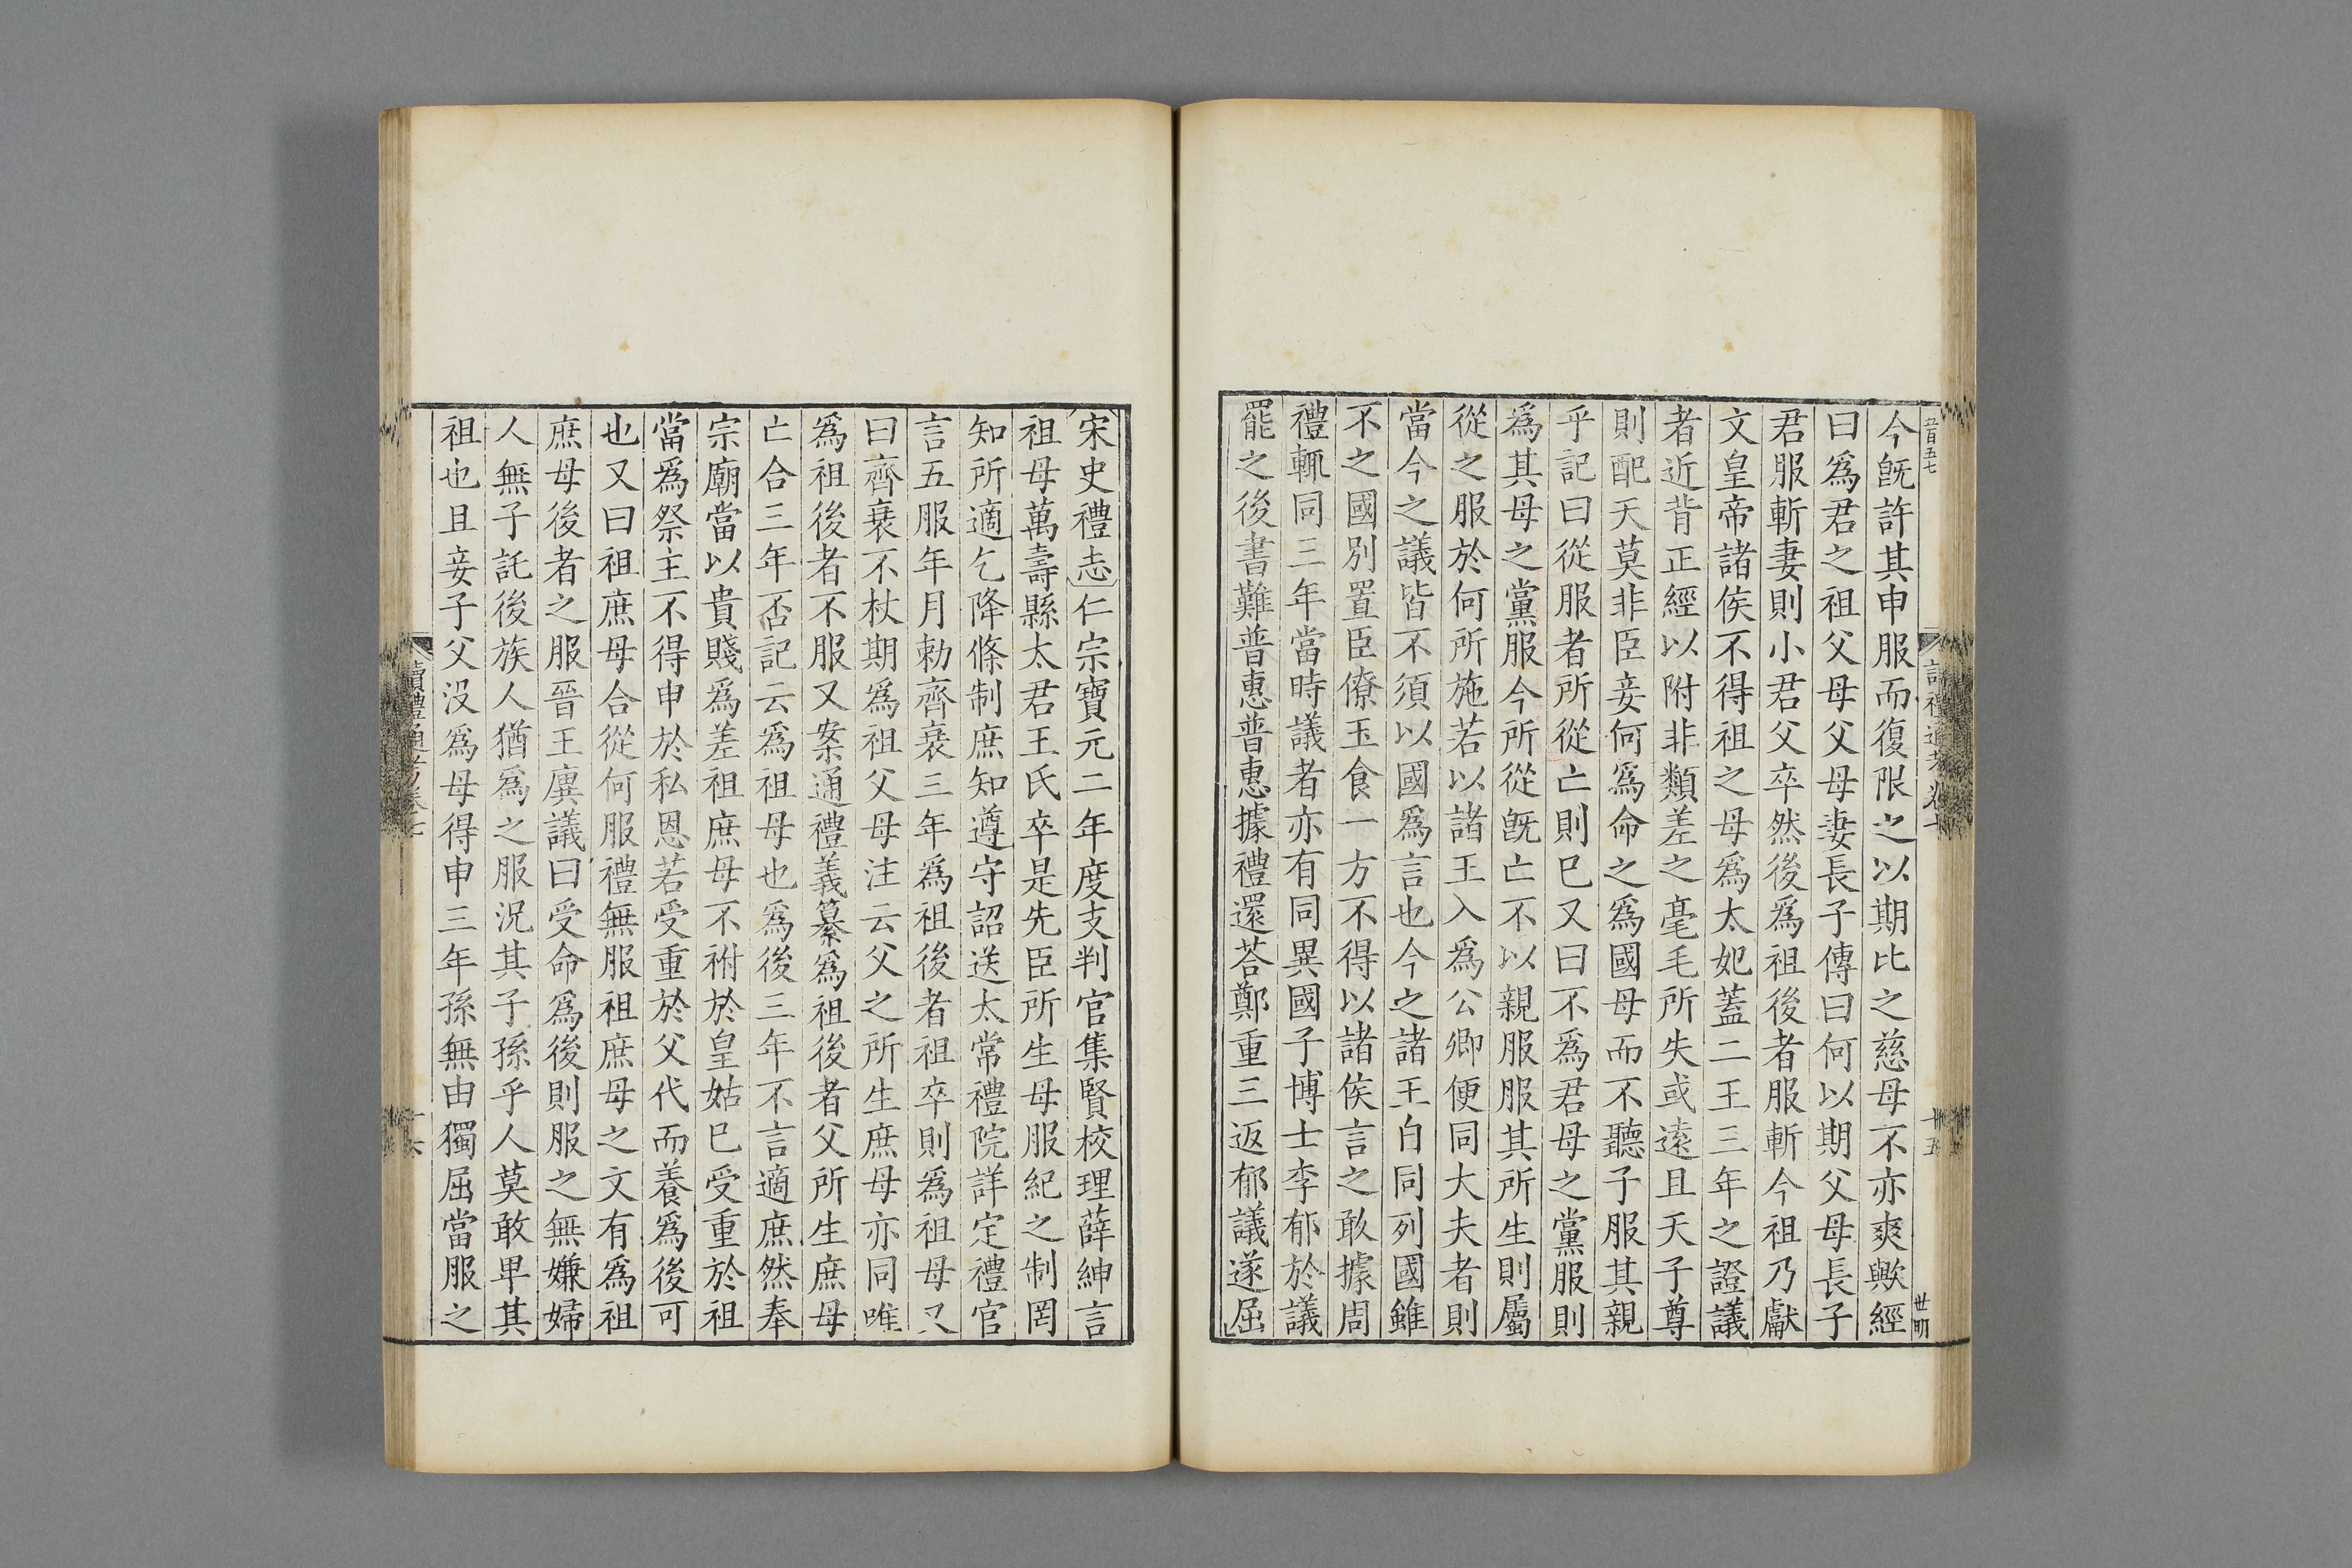 今旣許其申服而復限之以期比之慈母不亦爽歟經
曰爲君之祖父母父母妻長子傳曰何以期父母長子
君服斬妻則小君父卒然後爲祖後者服斬今祖乃獻
文皇帝諸侯不得祖之母爲太妃蓋二王三年之證議
者近背正經以附非類差之毫毛所失或遠且天子尊
則配天莫非臣妾何爲命之爲國母而不聽子服其親
乎記曰從服者所從亡則已又曰不爲君母之黨服則
爲其母之黨服今所從旣亡不以親服服其所生則屬
從之服於何所施若以諸王入爲公卿便同大夫者則
當今之議皆不須以國爲言也今之諸王自同列國雖
不之國別置臣僚玉食一方不得以諸侯言之敢據周
禮輒同三年當時議者亦有同異國子博士李郁於議
罷之後書難普惠普惠據禮還荅鄭重三返郁議遂屈
宋史禮志仁宗寶元二年度支判官集賢校理薛紳言
祖母萬壽縣太君王氏卒是先臣所生母服紀之制罔
知所適乞降條制庶知遵守詔送太常禮院詳定禮官
言五服年月勅齊衰三年爲祖後者祖卒則爲祖母又
曰齊衰不杖期爲祖父母注云父之所生庶母亦同唯
爲祖後者不服又案通禮義纂爲祖後者父所生庶母
亡合三年否記云爲祖母也爲後三年不言適庶然奉
宗廟當以貴賤爲差祖庶母不祔於皇姑已受重於祖
當爲祭主不得申於私恩若受重於父代而養爲後可
也又曰祖庶母合從何服禮無服祖庶母之文有爲祖
庶母後者之服晉王廙議曰受命爲後則服之無嫌婦
人無子託後族人猶爲之服況其子孫乎人莫敢卑其
祖也且妾子父沒爲母得申三年孫無由獨屈當服之
五百五七
讀禮通考卷七
十五
世明
讀禮通考卷七
十六